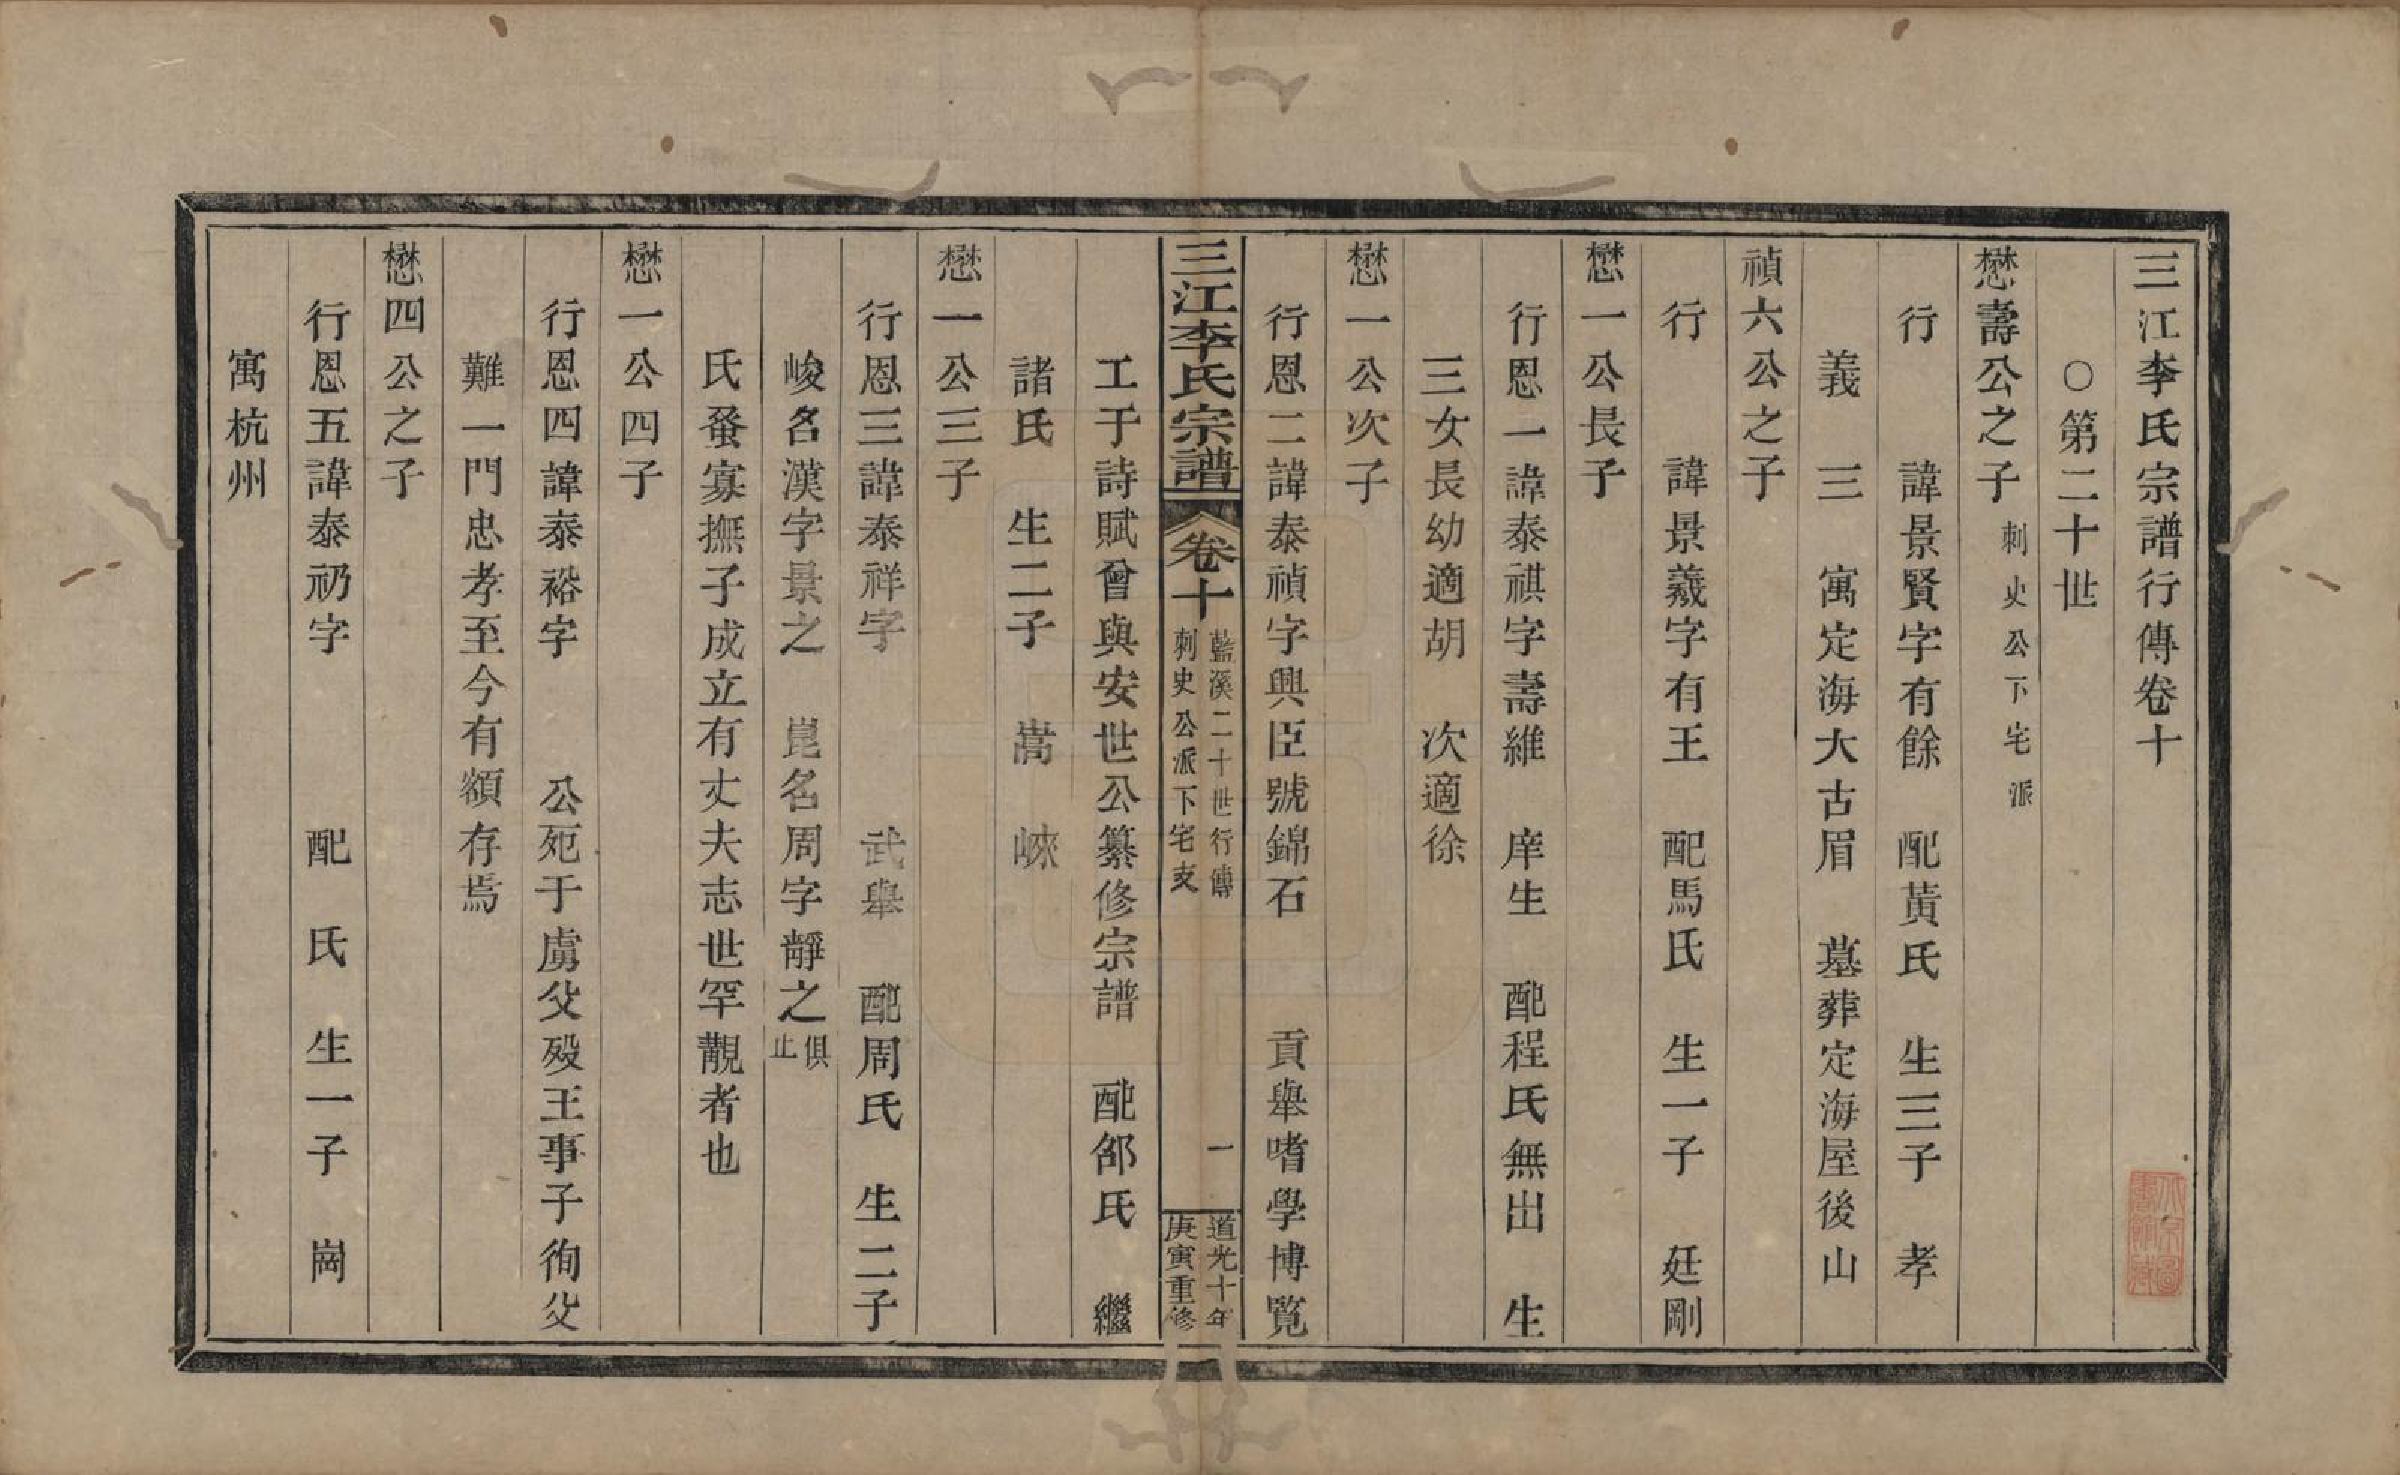 三江李氏宗譜行傳卷十
○第二十世
懋壽公之子刺史公下宅派
行　諱景賢字有餘　配黃氏　生三子　孝
義　三　寓定海大古眉　墓葬定海屋後山
禎六公之子
行　諱景羲字有王　配馬氏　生一子　廷剛
懋一公長子
行恩一諱泰祺字壽維　庠生　配程氏無出　生
三女長幼適胡　次適徐
懋一公次子
行恩二諱泰禎字興臣號錦石　貢舉嗜學博覽
三江李氏宗譜　卷十　藍溪二十世行傳　刺史公派下宅支　一　道光十年　庚寅重修
工于詩賦曾與安世公纂修宗譜　配邰氏　繼
諸氏　生二子　嵩　崍
懋一公三子
行恩三諱泰祥字　武舉　配周氏　生二子
峻名漢字景之　崑名周字靜之俱止
氏蚤寡撫子成立有丈夫志世罕覯者也
懋一公四子
行恩四諱泰裕字　公死于虜父歿王事子徇父
難一門忠孝至今有額存焉
懋四公之子
行恩五諱泰礽字　配　氏　生一子　崗
寓杭州